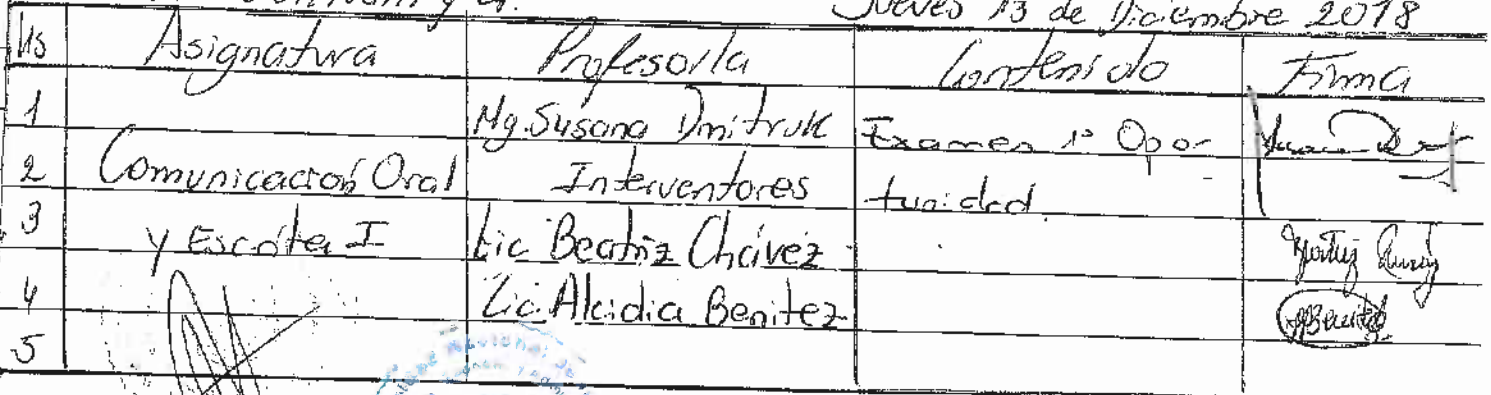 Jueves 13 de Diciembre 2018
Hs Asignatura Profesor/a Contenido Firma
1 Mg. Susana Dmitruk Examen 1ª Opor-
2 Comunicación Oral Interventores tunidad.
3 y Escrita I Lic Beatriz Chávez
4 Lic. Alcidia Benitez
5
Nacional de